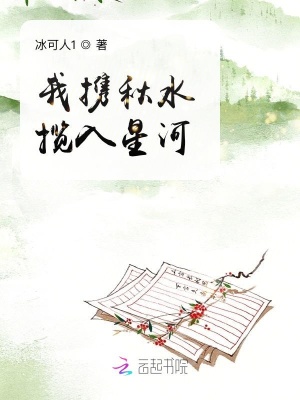 冰可人1 ◎ 著
我携秋水
揽入星河
云起书院